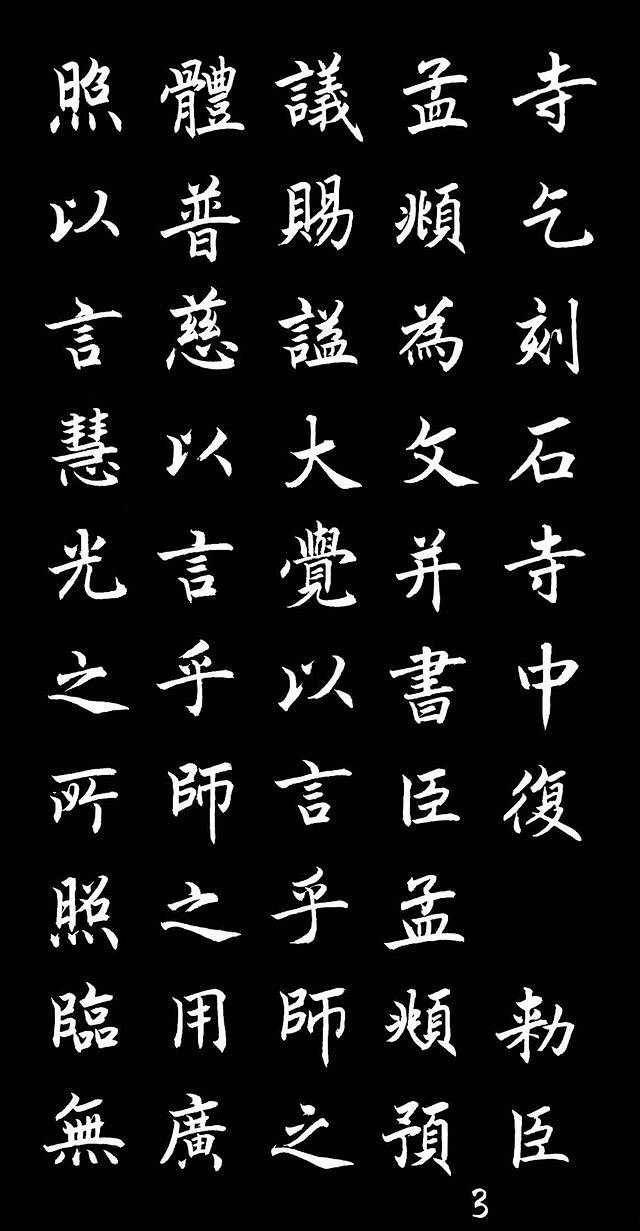 寺乞刻石寺中復 勑臣
孟頫為文并書臣孟頫預
議賜謚大覺以言乎師之
體普慈以言乎師之用廣
照以言慧光之所照臨無
3